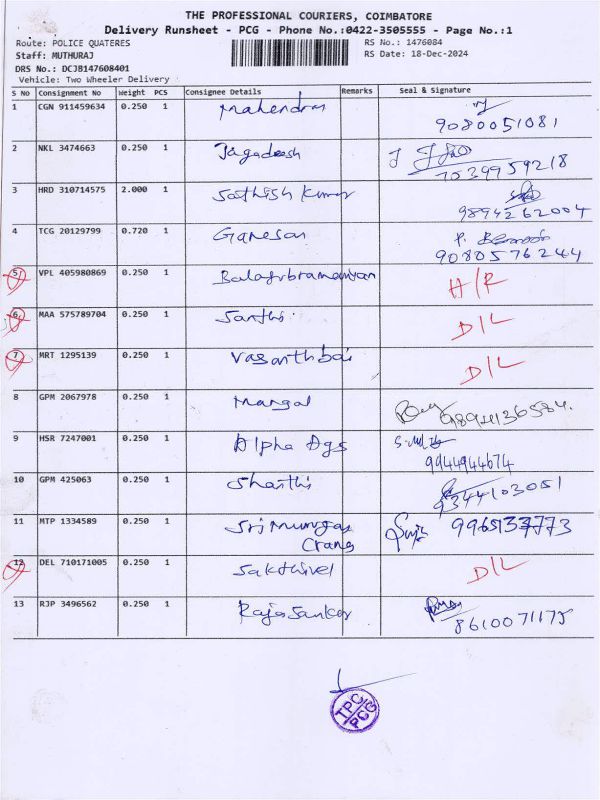 THE PROFESSIONAL COURIERS, COIMBATORE
Delivery Runsheet - PCG - Phone No.:0422-3505555 - Page No.:1
Route: POLICE QUATERES RS No.: 1476084
Staff: MUTHURAJ RS Date: 18-Dec-2024
DRS No.: DCJB147608401
Vehicle: Two Wheeler Delivery
S No Consignment No Weight PCS Consignee Details Remarks Seal & Signature
1 CGN 911459634 0.250 1 Mahendran
9080051081
2 NKL 3474663 0.250 1 Jagadeesh
7039959218
3 HRD 310714575 2.000 1 Sathish Kumar
9894262004
4 TCG 20129799 0.720 1 Ganesan P.
9080576244
5 VPL 405980869 0.250 1 Balasubramaniyan H/R
6 MAA 575789704 0.250 1 Santhi D/L
7 MRT 1295139 0.250 1 Vasanthbai D/L
8 GPM 2067978 0.250 1 Mangal 9894136584.
9 HSR 7247001 0.250 1 Alpha Ags
9944944674
10 GPM 425063 0.250 1 Shanthi 9344103051
11 MTP 1334589 0.250 1 Sri Murugan 9965137773
Crang
12 DEL 710171005 0.250 1 Sakthivel D/L
13 RJP 3496562 0.250 1 Raja Sankar
8610071175
TPC
PCG